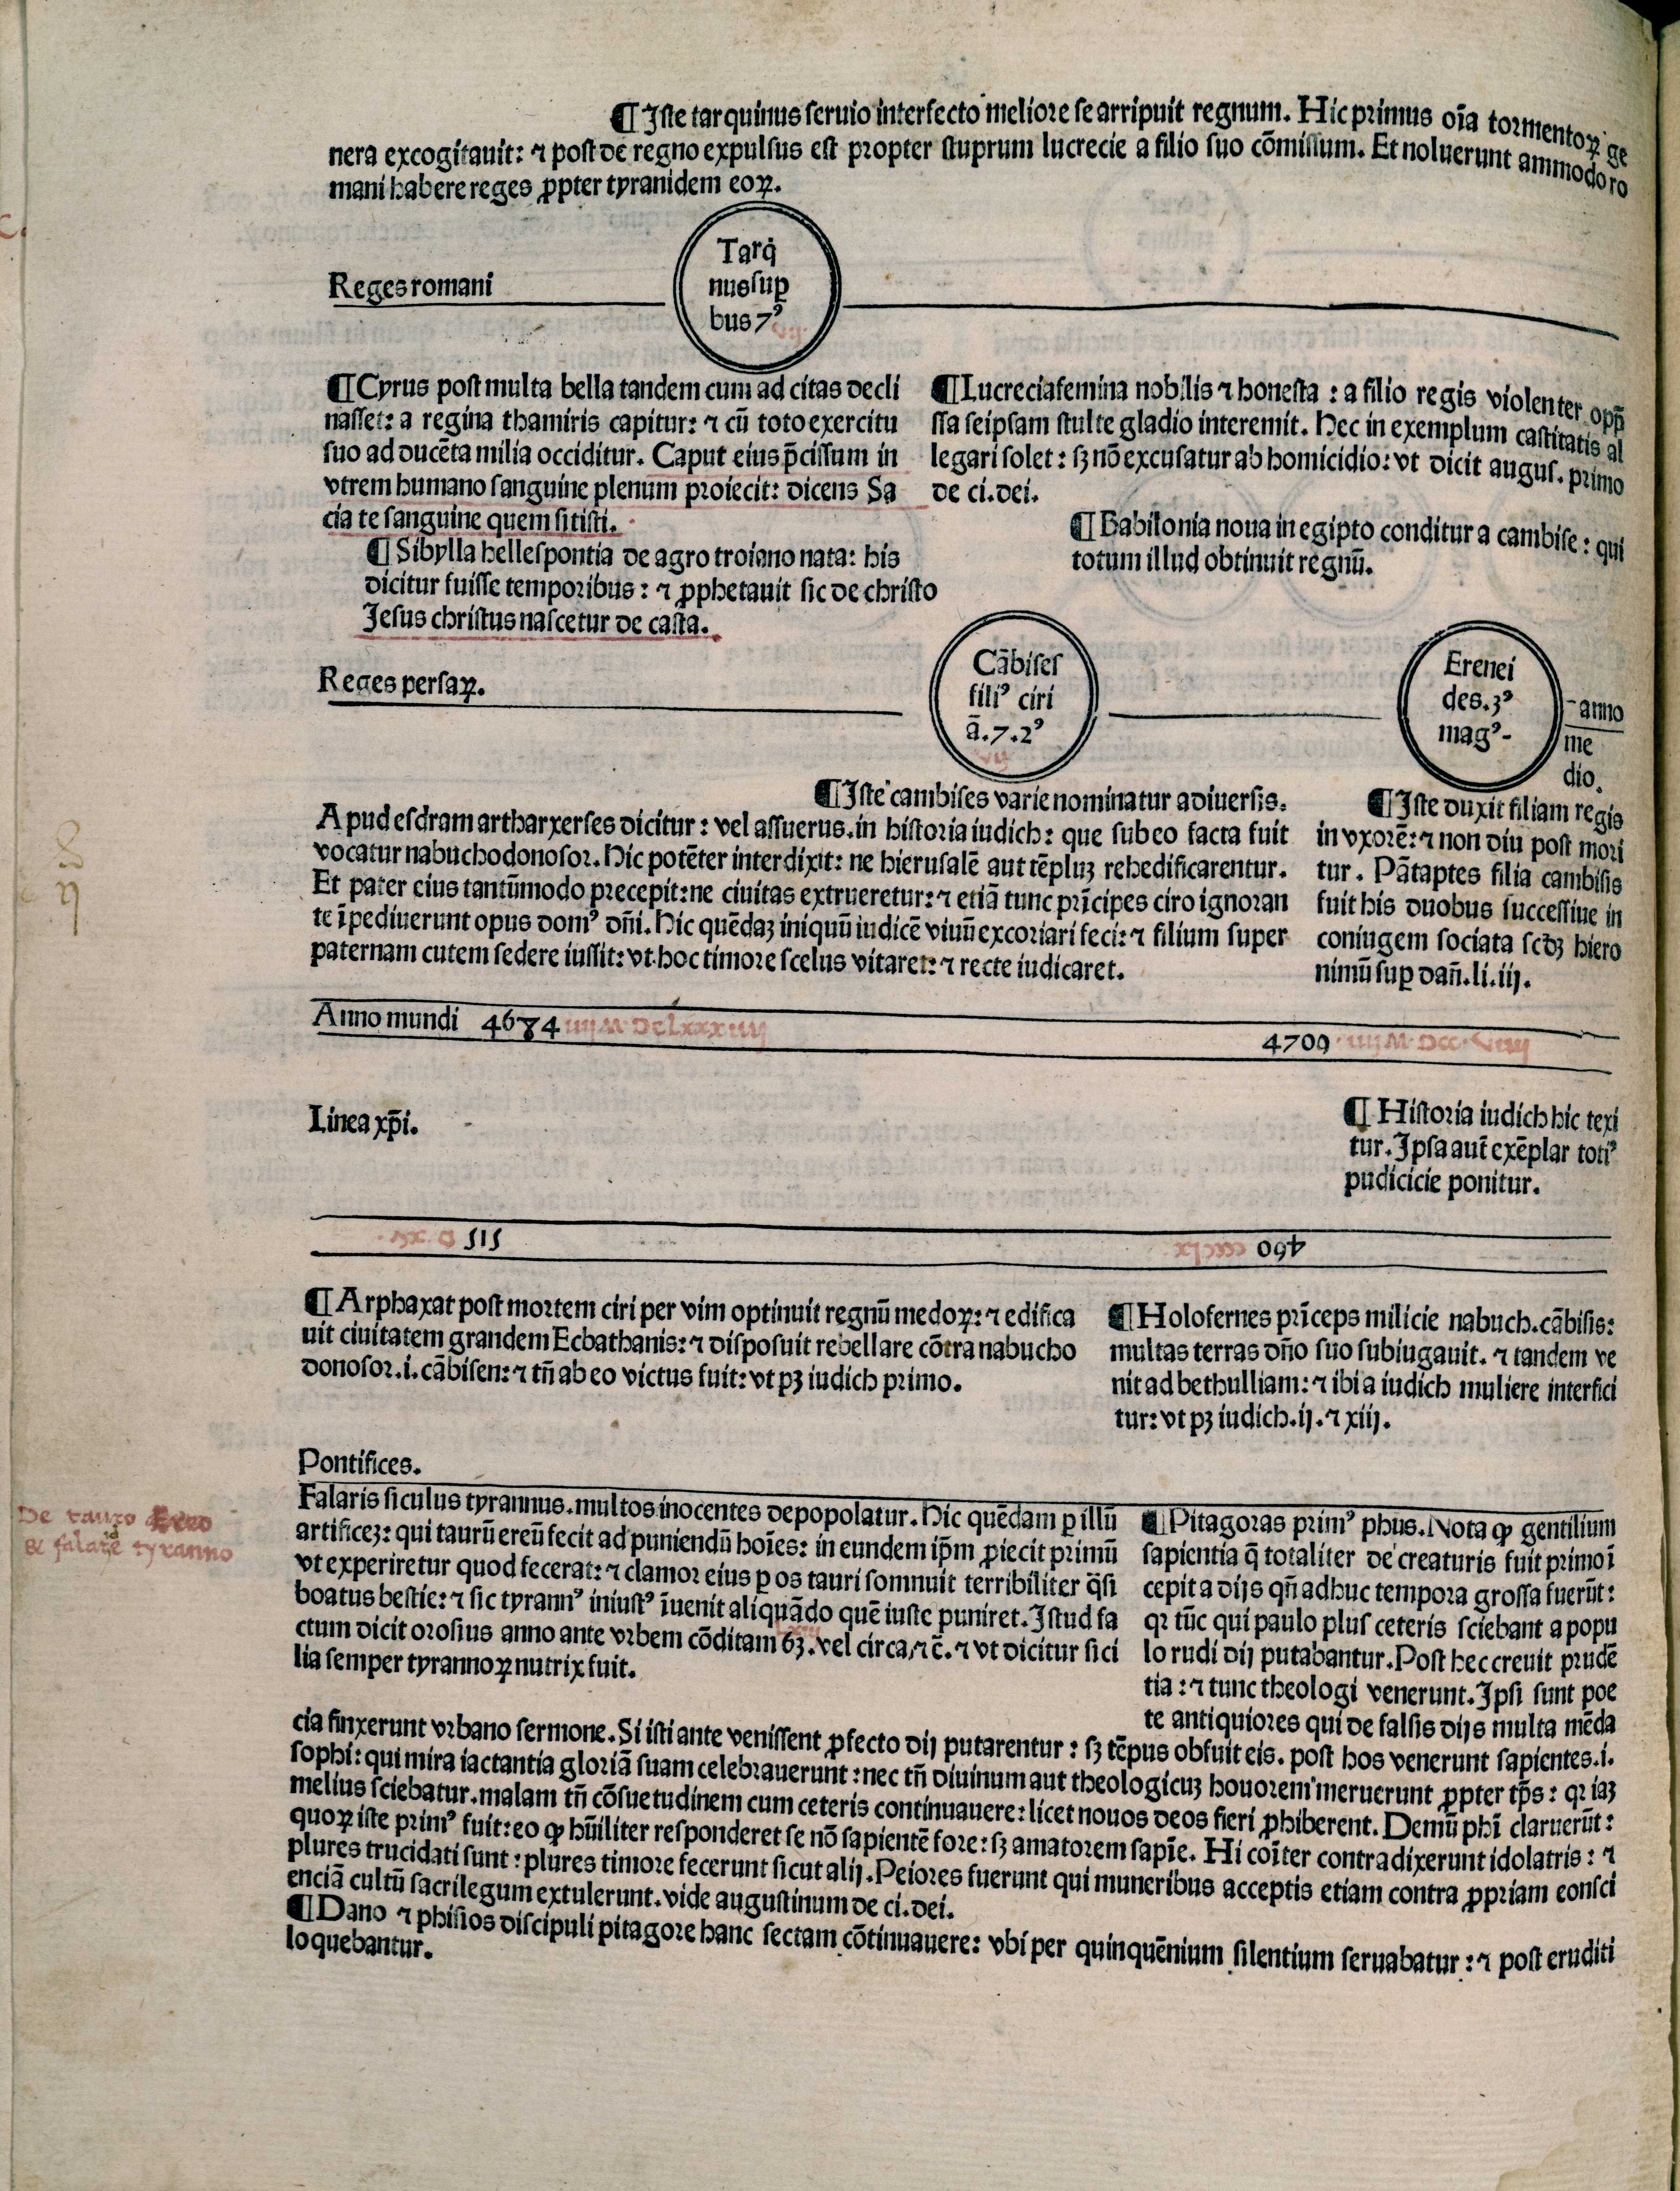 ¶Iste tarquinus seruio interfecto meliore se arripuit regnum. Hic primus oīa tormentoꝝ ge
nera excogitauit: ⁊ post de regno expulsus est propter stuprum lucrecie a filio suo cōmissum. Et noluerunt ammodo ro
mani habere reges ꝓpter tyranidem eoꝝ.
Reges romani
Tarq̇
nus suꝑ
bus 7ꝰ
¶Cyrus post multa bella tandem cum ad citas decli
nasset: a regina thamiris capitur: ⁊ cū toto exercitu
suo ad ducēta milia occiditur. Caput eius p̄cissum in
vtrem humano sanguine plenum proiecit: dicens Sa
cia te sanguine quem sitisti.
¶Sibylla hellespontia de agro troiano nata: his
dicitur fuisse temporibus: ⁊ ꝓphetauit sic de christo
Jesus christus nascetur de casta.
¶Lucrecia femina nobilis ⁊ honesta: a filio regis violenter opp̄
ssa seipsam stulte gladio interemit. Hec in exemplum castitatis al
legari solet: sꝫ nō excusatur ab homicidio: vt dicit augus. primo
de ci. dei.
¶Babilonia noua in egipto conditur a cambise: qui
totum illud obtinuit regnū.
Reges persaꝝ.
Cābises
filiꝰ ciri
ā.7.2ꝰ
Erenei
des.3ꝰ
magꝰ-
-anno
me
dio.
¶Iste cambises varie nominatur a diuersis.
Apud esdram artharxerses dicitur: vel assuerus. in historia iudich: que sub eo facta fuit
vocatur nabuchodonosor. Hic potēter interdixit: ne hierusalē aut tēpluꝫ rehedificarentur.
Et pater eius tantūmodo precepit: ne ciuitas extrueretur: ⁊ etiā tunc prīcipes ciro ignoran
te īpediuerunt opus domꝰ dn̄i. Hic quēdaꝫ iniquū iudicē viuū excoriari feci: ⁊ filium super
paternam cutem sedere iussit: vt hoc timore scelus vitaret: ⁊ recte iudicaret.
¶Iste duxit filiam regis
in vxorē: ⁊ non diu post mori
tur. Pātaptes filia cambisis
fuit his duobus successiue in
coniugem sociata scd̄ꝫ hiero
nimū suꝑ dan̄. li. iij.
Anno mundi 4684 iiijM·DCLxxxiiij
4709 iiijM·DCC·viiij
Linea xp̄i.
¶Historia iudich hic texi
tur. Ipsa aut̄ exēplar totiꝰ
pudicicie ponitur.
515 D·xv·
490 ccccxc
¶Arphaxat post mortem ciri per vim optinuit regnū medoꝝ: ⁊ edifica
uit ciuitatem grandem Ecbathanis: ⁊ disposuit rebellare cōtra nabucho
donosor. i. cābisen: ⁊ tn̄ ab eo victus fuit: vt pꝫ iudich primo.
¶Holofernes prīceps milicie nabuch. cābisis:
multas terras dn̄o suo subiugauit. ⁊ tandem ve
nit ad bethulliam: ⁊ ibi a iudich muliere interfici
tur: vt pꝫ iudich. ij. ⁊ xiij.
Pontifices.
De tauro Ereo
& falare tyranno
Falaris siculus tyrannus. multos inocentes depopolatur. Hic quēdam ꝑ illū
artificeꝫ: qui taurū ereū fecit ad puniendū hoīes: in eundem ip̄m ꝓiecit primū
vt experiretur quod fecerat: ⁊ clamor eius ꝑ os tauri somnuit terribiliter q̄si
boatus bestie: ⁊ sic tyrannꝰ iniustꝰ īuenit aliquādo quē iuste puniret. Istud fa
ctum dicit orosius anno ante vrbem cōditam 63. vel circa, ⁊ c̄. ⁊ vt dicitur sici
lia semper tyrannoꝝ nutrix fuit.
¶Pitagoras primꝰ phus. Nota ꝙ gentilium
sapientia q̄ totaliter de creaturis fuit primo ī
cepit a dijs qn̄ adhuc tempora grossa fuerūt:
qꝛ tūc qui paulo plus ceteris sciebant a popu
lo rudi dij putabantur. Post hec creuit prudē
tia: ⁊ tunc theologi venerunt. Ipsi sunt poe
te antiquiores qui de falsis dijs multa mēda
cia finxerunt vrbano sermone. Si isti ante venissent ꝓfecto dij putarentur: sꝫ tēpus obfuit eis. post hos venerunt sapientes. i.
sophi: qui mira iactantia gloriā suam celebrauerunt: nec tn̄ diuinum aut theologicuꝫ houorem meruerunt ꝓpter tp̄s: qꝛ iaꝫ
melius sciebatur. malam tn̄ cōsuetudinem cum ceteris continuauere: licet nouos deos fieri ꝓhiberent. Demū phī claruerūt:
quoꝝ iste primꝰ fuit: eo ꝙ hūiliter responderet se nō sapientē fore: sꝫ amatorem sapīe. Hi coīter contradixerunt idolatris: ⁊
plures trucidati sunt: plures timore fecerunt sicut alij. Peiores fuerunt qui muneribus acceptis etiam contra ꝓpriam eonsci
enciā cultū sacrilegum extulerunt. vide augustinum de ci. dei.
¶Dano ⁊ phisios discipuli pitagore hanc sectam cōtinuauere: vbi per quinquēnium silentium seruabatur: ⁊ post eruditi
loquebantur.